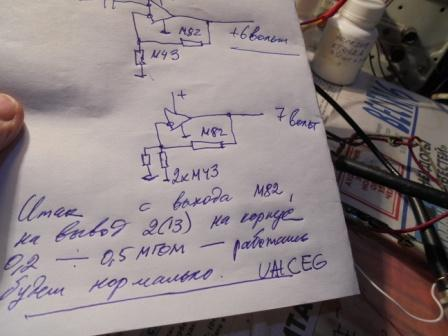 М82
+6 вольт
М43
+
7 вольт
М82
2хМ43
Итак с выхода М82
на вывод 2(13) на корпус
0,2 ÷ 0,5 МГОМ — работать
будет нормально. UA1CEG